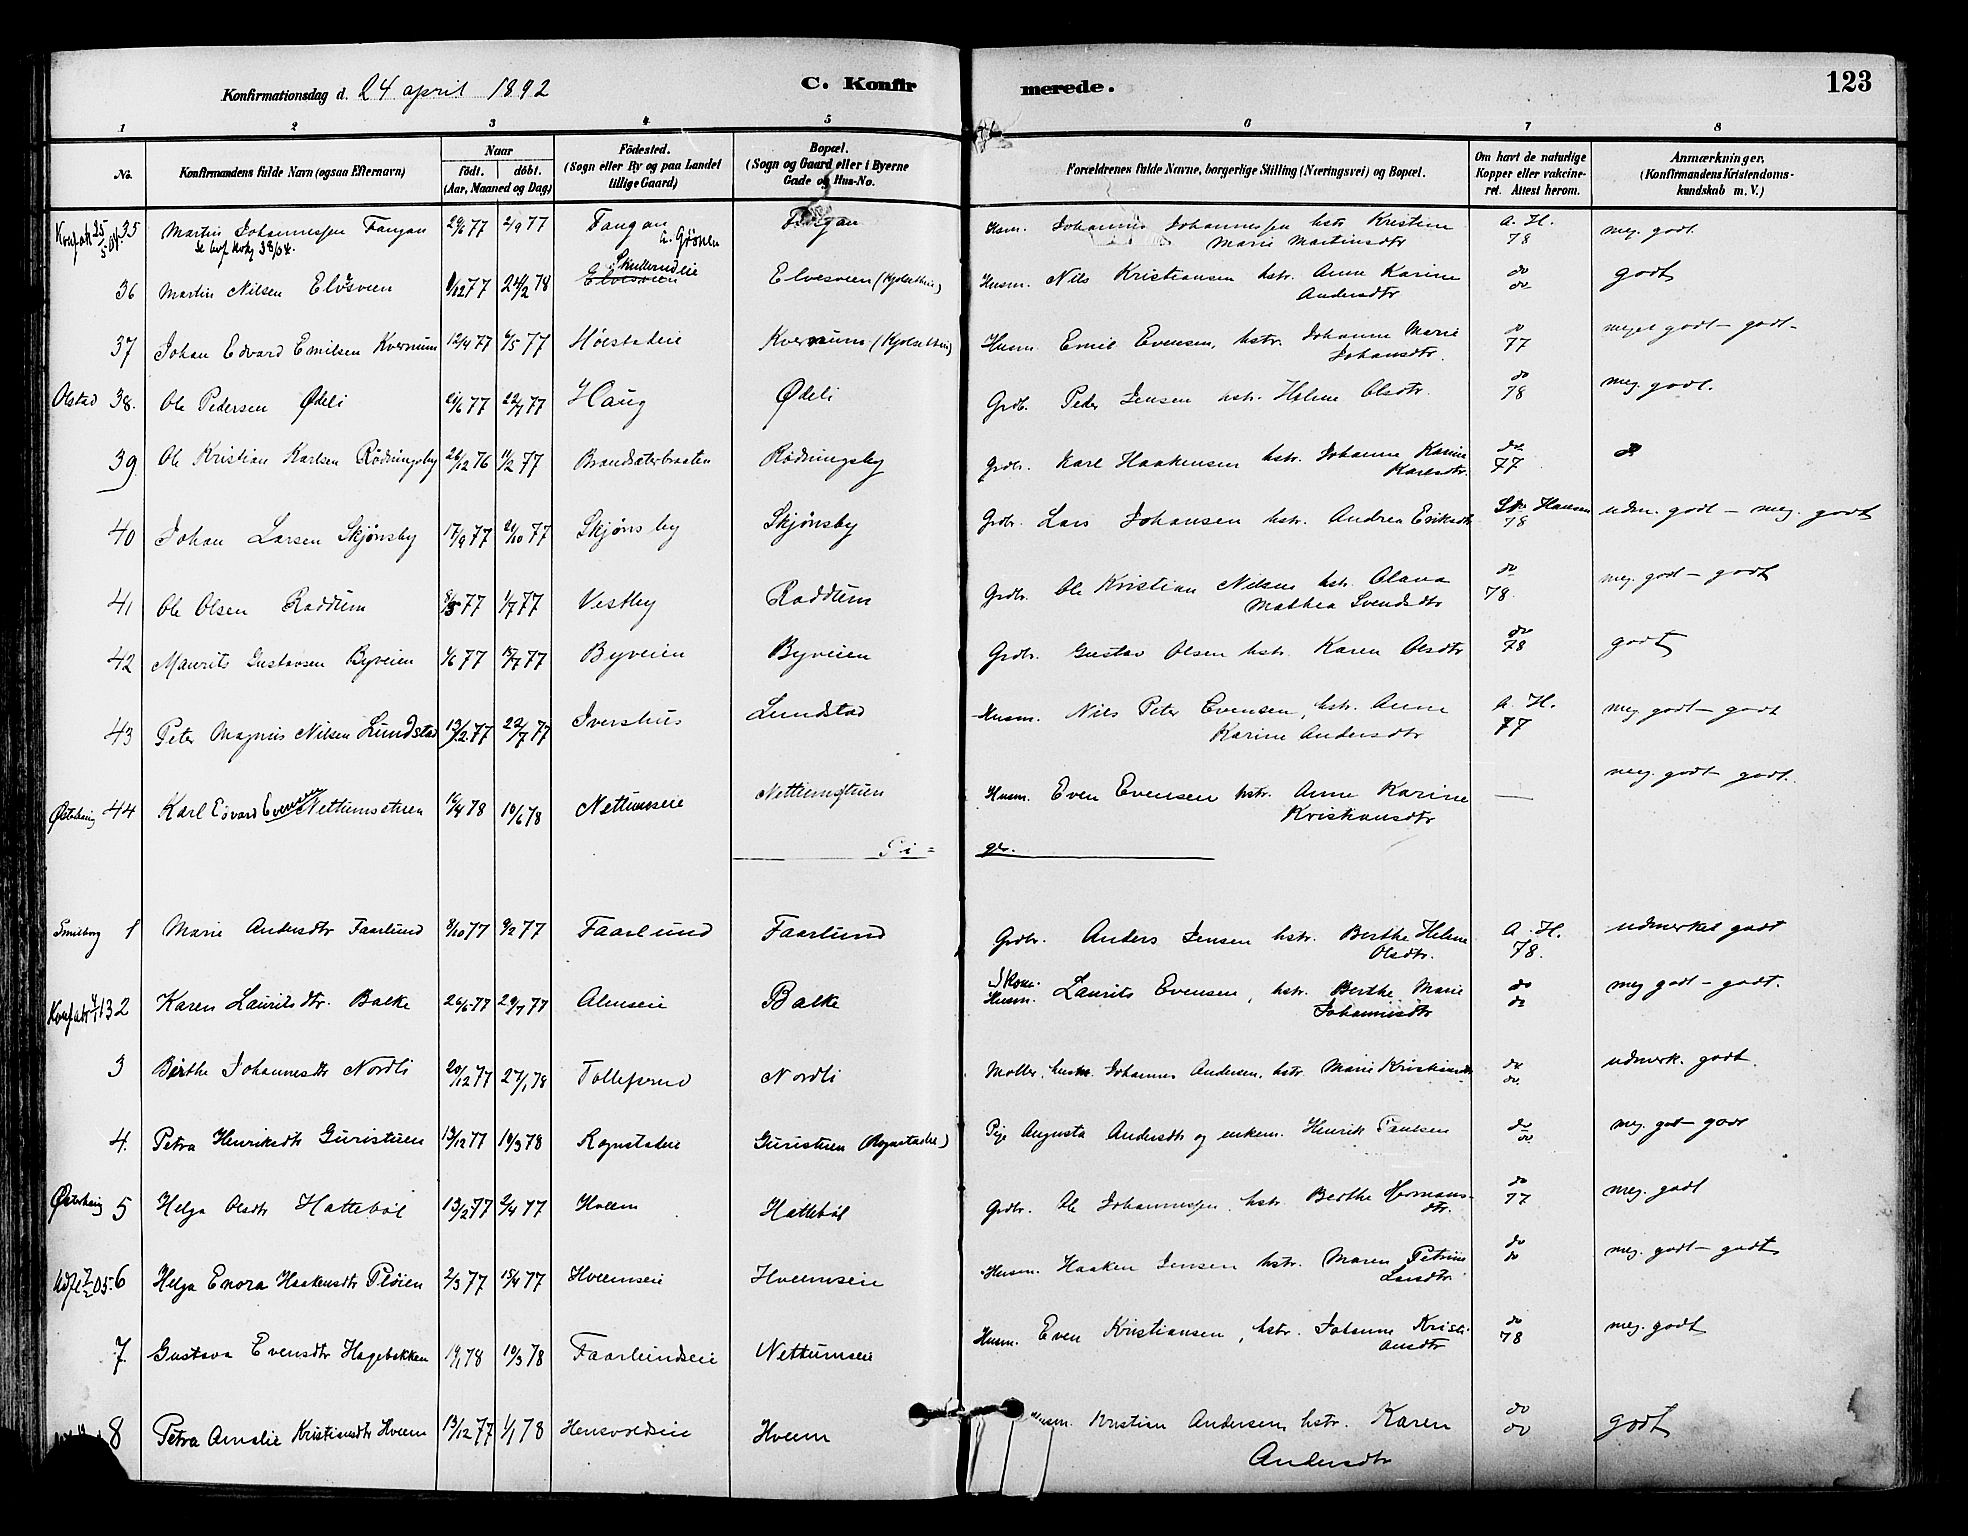 Konfirmationsdag d. 24 april 1892 C. Konfirmerede. 123
1 2 3 4 5 6 7 8
No. Konfirmandens fulde Navn (ogsaa Efternavn) Naar födt. döbt. (Aar, Maaned og Dag) Födested. (Sogn eller By og paa Landet tillige Gaard) Bopæl. (Sogn og Gaard eller i Byerne Gade og Hus-No. Forældrenes fulde Navne, borgerlige Stilling (Næringsvei) og Bopæl. Om havt de naturlige Kopper eller vakcineret. Attest herom. Anmærkninger. (Konfirmandens Kristendomskundskab m. V.)
35 Martin Johannessen Fangan 29/6 77 2/9 77 Fangan Fangan Husm. Johannes Johannessen hstr Kristine Marie Martinsdtr A. H. 78 meg. godt.
36 Martin Nilsen Elvsveen 24/2 78 Skullerudeie Elvesveien (Kjølsetheie) Husm. Nils Kristiansen hstr. Anne Karine Andersdtr do do godt
37 Johan Edvard Emilsen Kvernum 12/4 77 6/5 77 Höistadeie Kvernum (Kjølsetheie) Husm. Emil Evensen, hstr. Johanne Marie Johansdtr. do 77 meget godt - godt
Olstad 38. Ole Pedersen Ødeli 21/6 77 22/7 77 Haug Ødeli Grdb. Peder Jensen hstr. Helene Olsdtr. do 78 meg. godt.
39 Ole Kristian Karlsen Rödningsby 26/12 76 11/2 77 Brandsæterbraaten Rödningsby Grdbr. Karl Haakensen hstr. Johanne Karine Karlsdtr. do 77
40 Johan Larsen Skjønsby 17/9 77 21/10 77 Skjønsby Skjønsby Grdbr. Lars Johansen hstr. Andrea Eriksdtr Hansen 78 udm. godt - meg. godt
41 Ole Olsen Raddum 8/5 77 1/7 77 Vestby Raddum Grdbr. Ole Kristian Nilsen hstr. Olava Mathea Svendsdtr do 78. meg. godt - godt
42 Maurits Gustavsen Byveien 1/6 77 15/7 77 Byveien Byveien Grdbr. Gustav Olsen hstr. Karen Olsdtr do 78 godt
43 Peter Magnus Nilsen Lundstad 13/2 77 22/7 77 Ivershus Lundstad Husm. Nils Peter Evensen, hstr. Anne Karine Andersdtr A. H. 77 meg godt - godt
44 Karl Edvard Evensen Nettumstuen 10/6 78 Nettumseie Nettumstuen Husm. Even Evensen hstr. Anne Karine Kristiansdtr — meg. godt - godt.
Pi= ger.
1 Marie Andersdtr Faarlund 8/10 77 9/12 77 Faarlund Faarlund Grdbr. Anders Jensen hstr. Berthe Helene Olsdtr. A. H. 78. udmerket godt
2 Karen Lauritsdtr. Balke 26/6 77 29/7 77 Almseie Balke Skom. Husm. Laurits Evensen, hstr. Berthe Marie Johannesdtr do do meg godt - godt.
3 Berthe Johannesdtr Nordli 20/12 77 27/1 78 Tollefsrud Nordli Møller, husm. Johannes Andersen, hstr. Marie Kristiansdtr do do udmerk. godt.
4. Petra Henriksdtr Guristuen 13/12 77 10/3 78 Rognstadeie Guristuen (Rognstadeie) Pige Augusta Andersdtr og enkem. Henrik Paulsen do do meg. godt - godt
5 Helga Olsdtr Hattebøl 13/2 77 2/4 77 Hveem Hattebøl Grdbr. Ole Johannessen, hstr. Berthe Hermansdtr. do 77 meg. godt
6 Helga Enora Haakensdtr Pløien 2/3 77 15/4 77 Hveemseie Hveemseie Husm. Haaken Jensen hstr. Maren Petrine Larsdtr do do meg. godt - godt
7. Gustava Evensdtr Hagebakken 19/1 78 10/3 78 Faarlundseie Nettumseie Husm. Even Kristiansen, hstr. Johanne Kristiansdtr do 78 meg. godt
8 Petra Amalie Kristiansdtr Hveem 13/12 77 1/1 78 Hensvoldeie Hveem Husm. Kristian Andersen, hstr. Karen Andersdtr do do godt